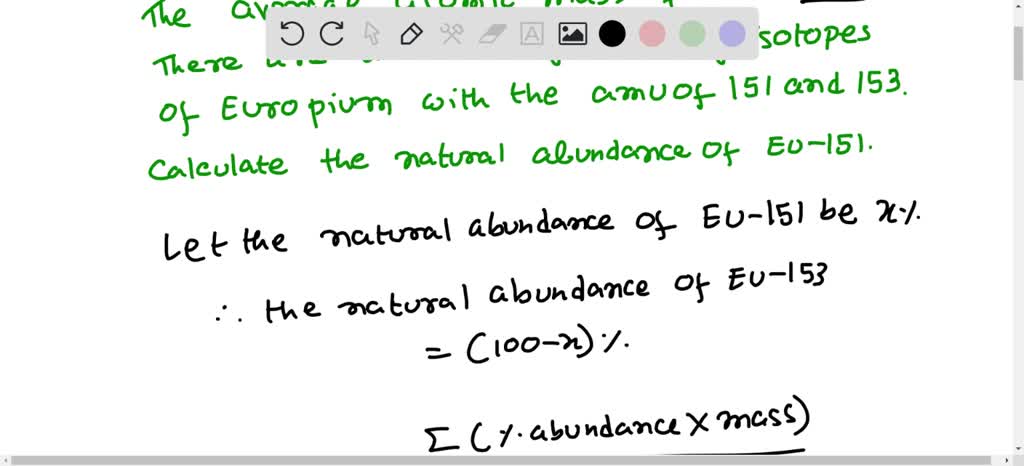 The atomic mass
There isotopes
of Europium with the amu of 151 and 153.
Calculate the natural abundance of Eu-151.
Let the natural abundance of Eu-151 be x%.
∴ the natural abundance of Eu-153
= (100-x)%.
Σ(%.abundance × mass)